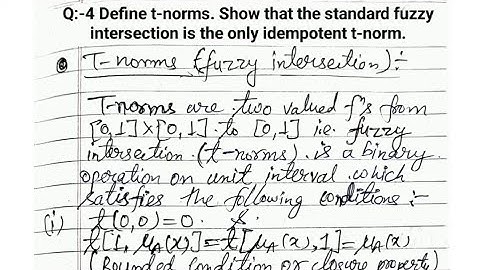 Q:-4 Define t-norms. Show that the standard fuzzy
intersection is the only idempotent t-norm.
T-norms (fuzzy intersection):-
T-norms are two valued f's from
[0,1]×[0,1] to [0,1] i.e. fuzzy
intersection (t-norms) is a binary
operation on unit interval which
satisfies the following conditions:-
(i) t(0,0)=0. &
t[1, μA(x)]=t[μA(x),1]=μA(x)
(Bounded condition or closure property)